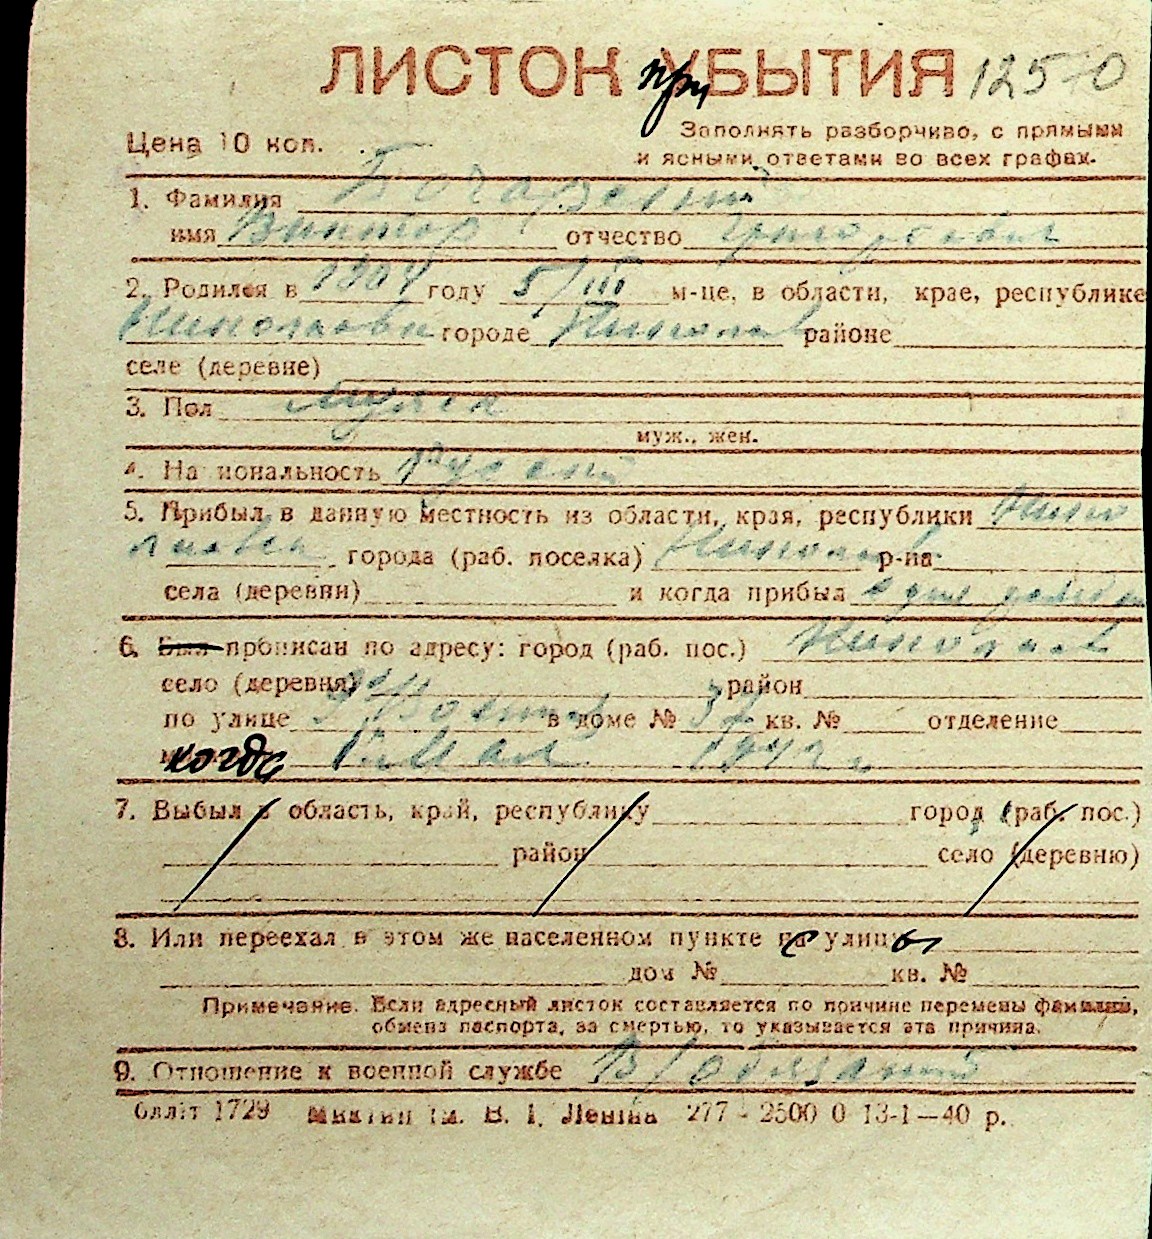 ЛИСТОК при УБЫТИЯ 1250
Цена 10 коп.
Заполнять разборчиво, с прямыми
и ясными ответами во всех графах.
1. Фамилия
имя Виктор отчество Григорьевич
2. Родился в 1904 году 5/III м-це, в области, крае, республике
Николаевск городе Николаев районе
селе (деревне)
3. Пол мужск
муж., жен.
4. Национальность Русский
5. Прибыл в данную местность из области, края, республики Нико
лаевск города (раб. поселка) Николаев р-на
села (деревни) и когда прибыл
6. Был прописан по адресу: город (раб. пос.) Николаев
село (деревня) район
по улице в доме № 37 кв. № отделение
когда Мая 1942 г.
7. Выбыл в область, край, республику город (раб. пос.)
район село (деревню)
8. Или переехал в этом же населенном пункте с улицы
дом № кв. №
Примечание. Если адресный листок составляется по причине перемены фамилии,
обмена паспорта, за смертью, то указывается эта причина.
9. Отношение к военной службе В/обязаный
1729 ім. В. І. Леніна 277 - 2500 0 13-1—40 р.